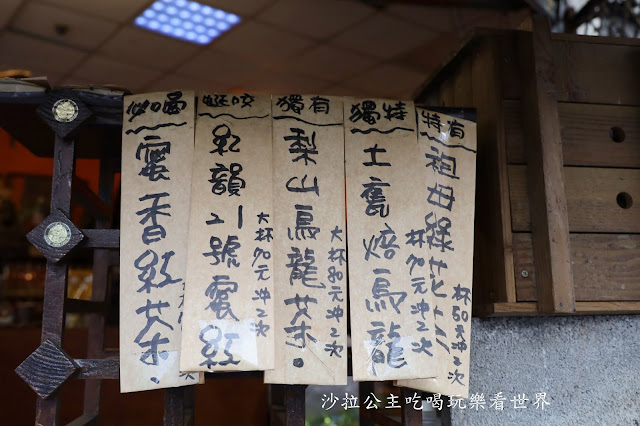 必喝
蜜香紅茶.
紅韻21號蜜紅
大杯90元冲2次
獨有
梨山烏龍茶.
大杯80元冲2次
獨特
土甕焙烏龍
杯90元冲2次
特有
祖母綠花
杯50元冲2次
沙拉公主吃喝玩樂看世界